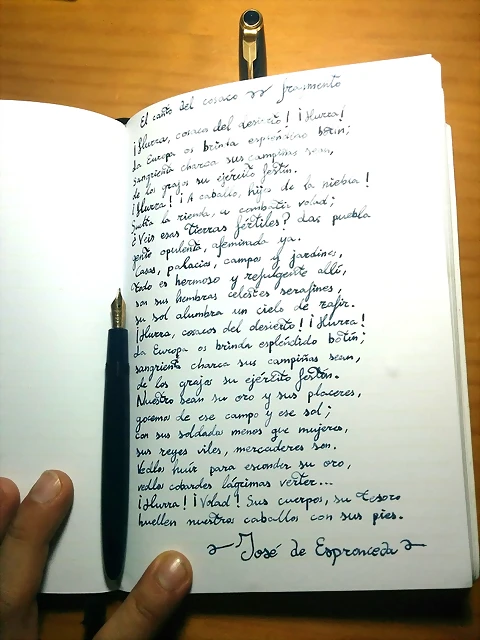 El canto del cosaco fragmento
¡Hurra, cosacos del desierto! ¡Hurra!
La Europa os brinda espléndido botín;
sangrienta charca sus campiñas sean,
de los grajos su ejército festín.
¡Hurra! ¡A caballo, hijos de la niebla!
Suelta la rienda, a combatir volad;
¿Veis esas tierras fértiles? Las puebla
gente opulenta, afeminada ya.
Casas, palacios, campos y jardines,
todo es hermoso y refulgente allí,
son sus hembras celestes serafines,
su sol alumbra un cielo de zafir.
¡Hurra, cosacos del desierto! ¡Hurra!
La Europa os brinda espléndido botín;
sangrienta charca sus campiñas sean,
de los grajos su ejército festín.
Nuestro sean su oro y sus placeres,
gocemos de ese campo y ese sol;
son sus soldados menos que mujeres,
sus reyes viles, mercaderes son.
Vedlos huir para esconder su oro,
vedlos cobardes lágrimas verter...
¡Hurra! ¡Volad! Sus cuerpos, su tesoro
huellen nuestros caballos con sus pies.
José de Espronceda